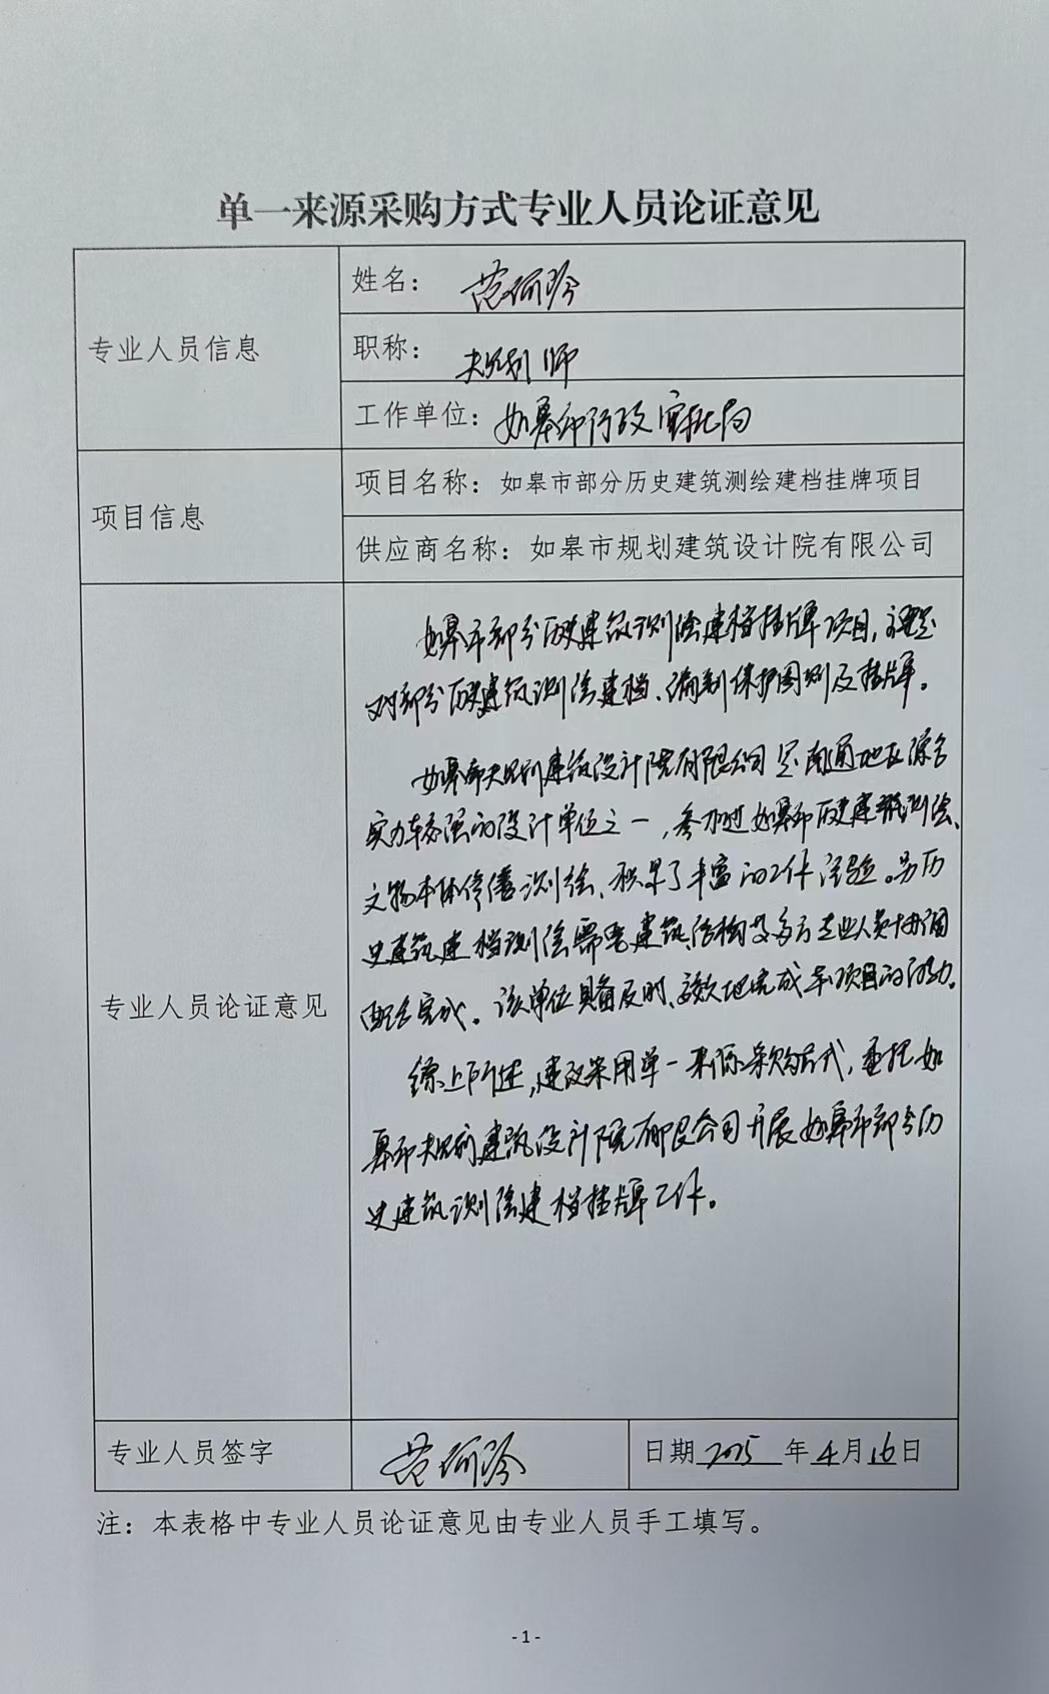 单一来源采购方式专业人员论证意见
专业人员信息
姓名：
职称：规划师
工作单位：如皋市行政审批局
项目信息
项目名称：如皋市部分历史建筑测绘建档挂牌项目
供应商名称：如皋市规划建筑设计院有限公司
专业人员论证意见
如皋市部分历史建筑测绘建档挂牌项目，主要是
对部分历史建筑测绘建档、编制保护图则及挂牌。
如皋市规划建筑设计院有限公司是南通地区综合
实力较强的设计单位之一，参加过如皋市历史建筑测绘、
文物本体修缮测绘、积累了丰富的工作经验。另历
史建筑建档测绘需要建筑、结构等多方专业人员协调
配合完成。该单位具备及时、高效地完成本项目的能力。
综上所述，建议采用单一来源采购方式，委托如
皋市规划建筑设计院有限公司开展如皋市部分历
史建筑测绘建档挂牌工作。
专业人员签字
日期 2025 年 4 月 16 日
注：本表格中专业人员论证意见由专业人员手工填写。
- 1 -